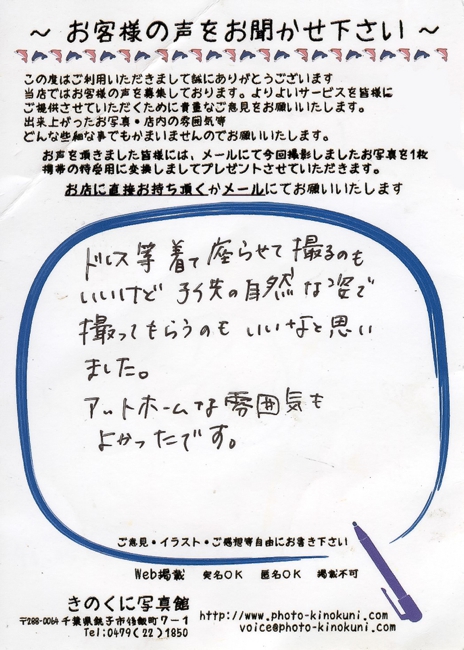 ～ お客様の声をお聞かせ下さい ～
この度はご利用いただきまして誠にありがとうございます
当店ではお客様の声を募集しております。よりよいサービスを皆様に
ご提供させていただくために貴重なご意見をお願いいたします。
出来上がったお写真・店内の雰囲気等
どんな些細な事でもかまいませんのでお願いいたします。
お声を頂きました皆様には、メールにて今回撮影しましたお写真を1枚
携帯の待受用に変換しましてプレゼントさせていただきます。
お店に直接お持ち頂くかメールにてお願いいたします
ドレス等着て座らせて撮るのも
いいけど 子供の自然な姿で
撮ってもらうのもいいなと思い
ました。
アットホームな雰囲気も
よかったです。
ご意見・イラスト・ご感想等自由にお書き下さい
Web掲載 実名OK 匿名OK 掲載不可
きのくに写真館
〒288-0064 千葉県銚子市後飯町7-1
Tel:0479(22)1850
http://www.photo-kinokuni.com/
voice@photo-kinokuni.com